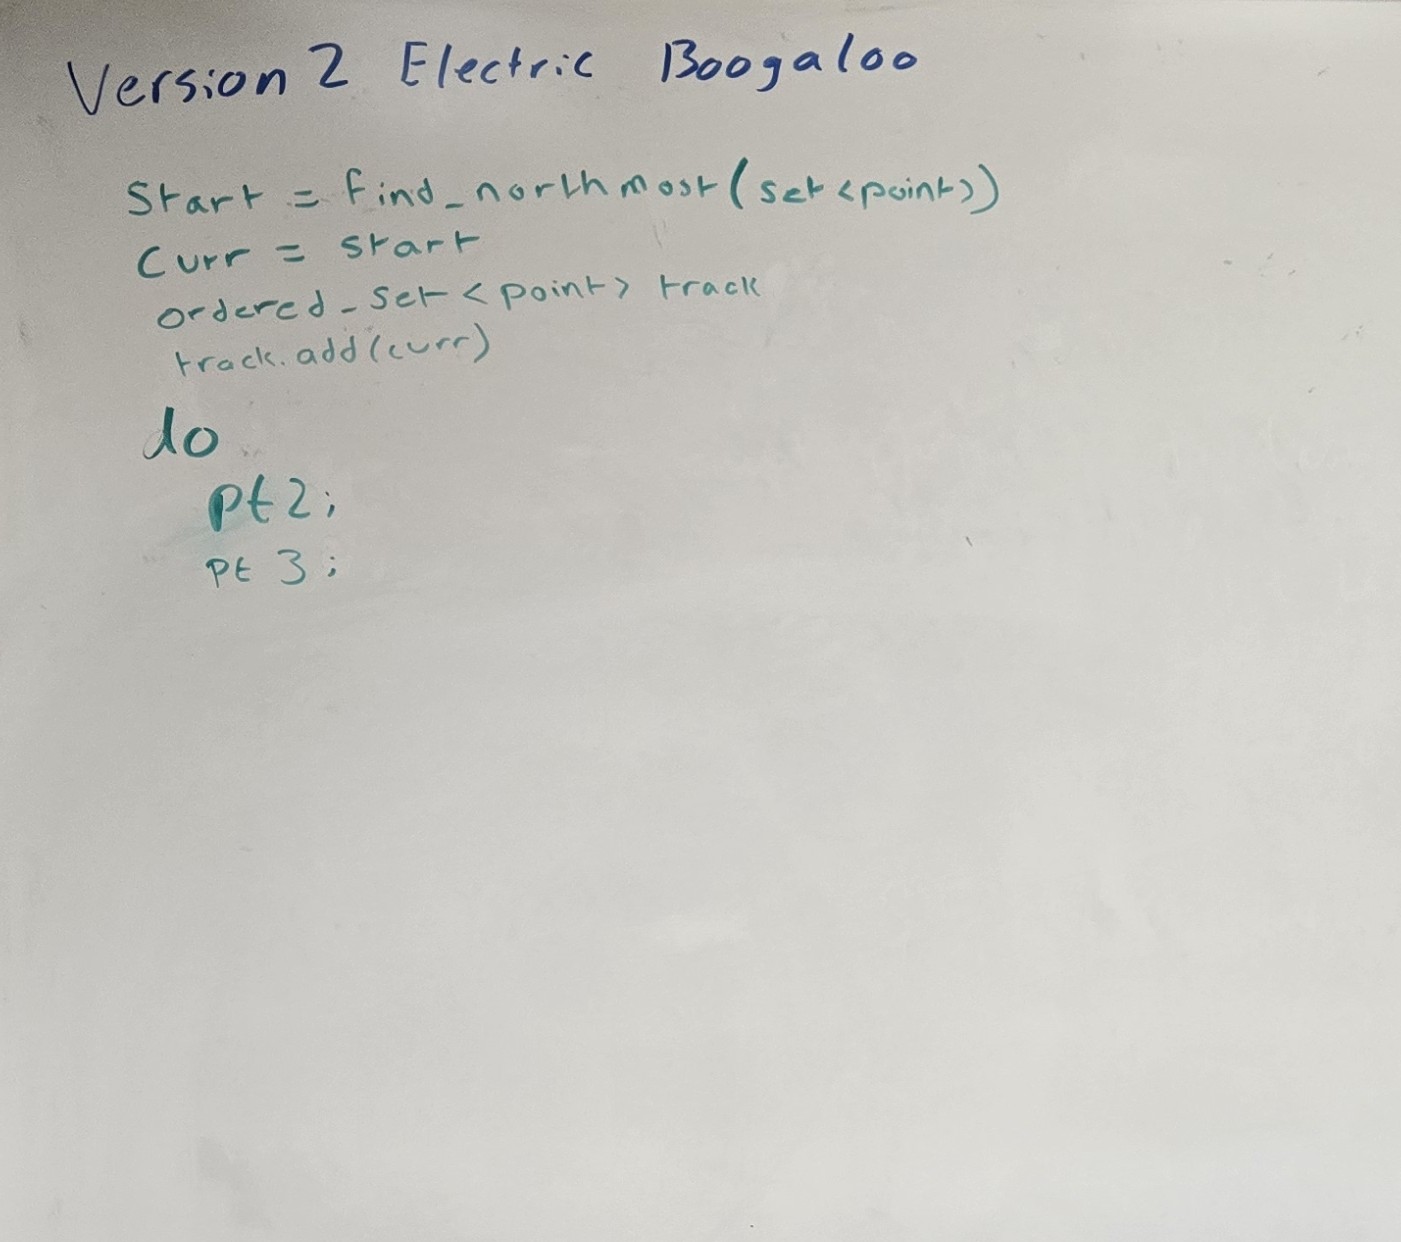 Version 2 Electric Boogaloo
Start = find_northmost(set<point>)
Curr = start
ordered_set<point> track
track.add(curr)
do
pt2;
pt 3;